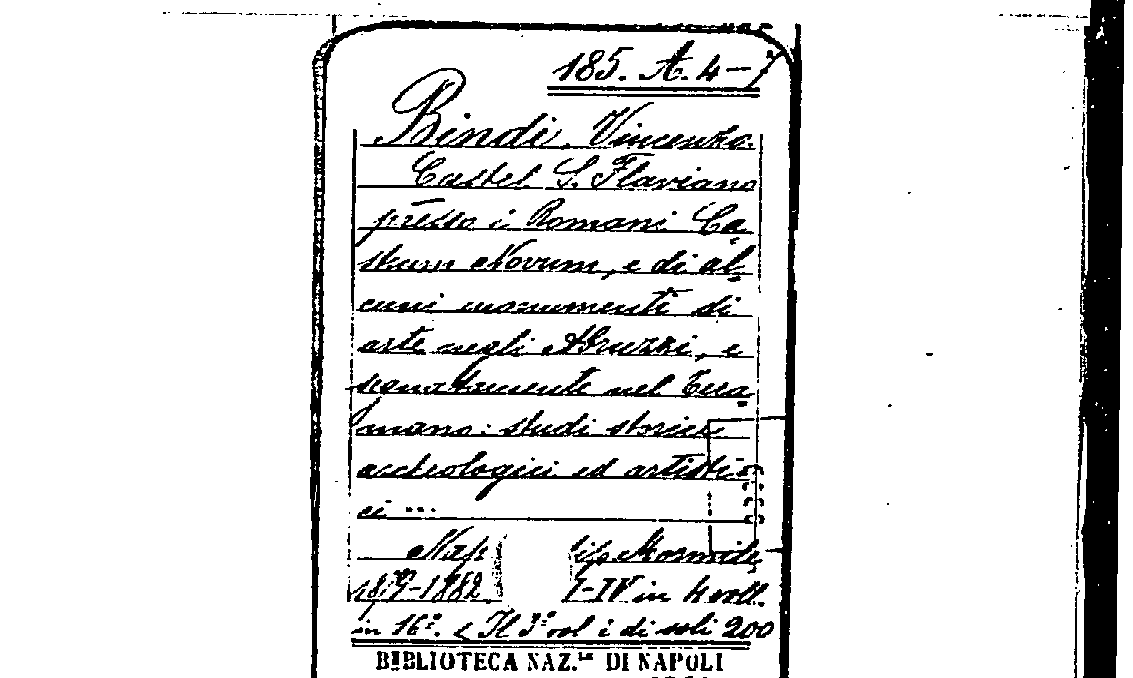 185. A. 4-7
Bindi, Vincenzo.
Castel S. Flaviano
presso i Romani Ca-
strum Novum, e di al-
cuni monumenti di
arte negli Abruzzi, e
segnatamente nel Tera-
mano: studi storici
archeologici ed artisti-
ci ...
Nap tip Mormile,
1879-1882 I-IV in 4 voll.
in 16°. < Il 3° vol è di soli 200
BIBLIOTECA NAZ.LE DI NAPOLI